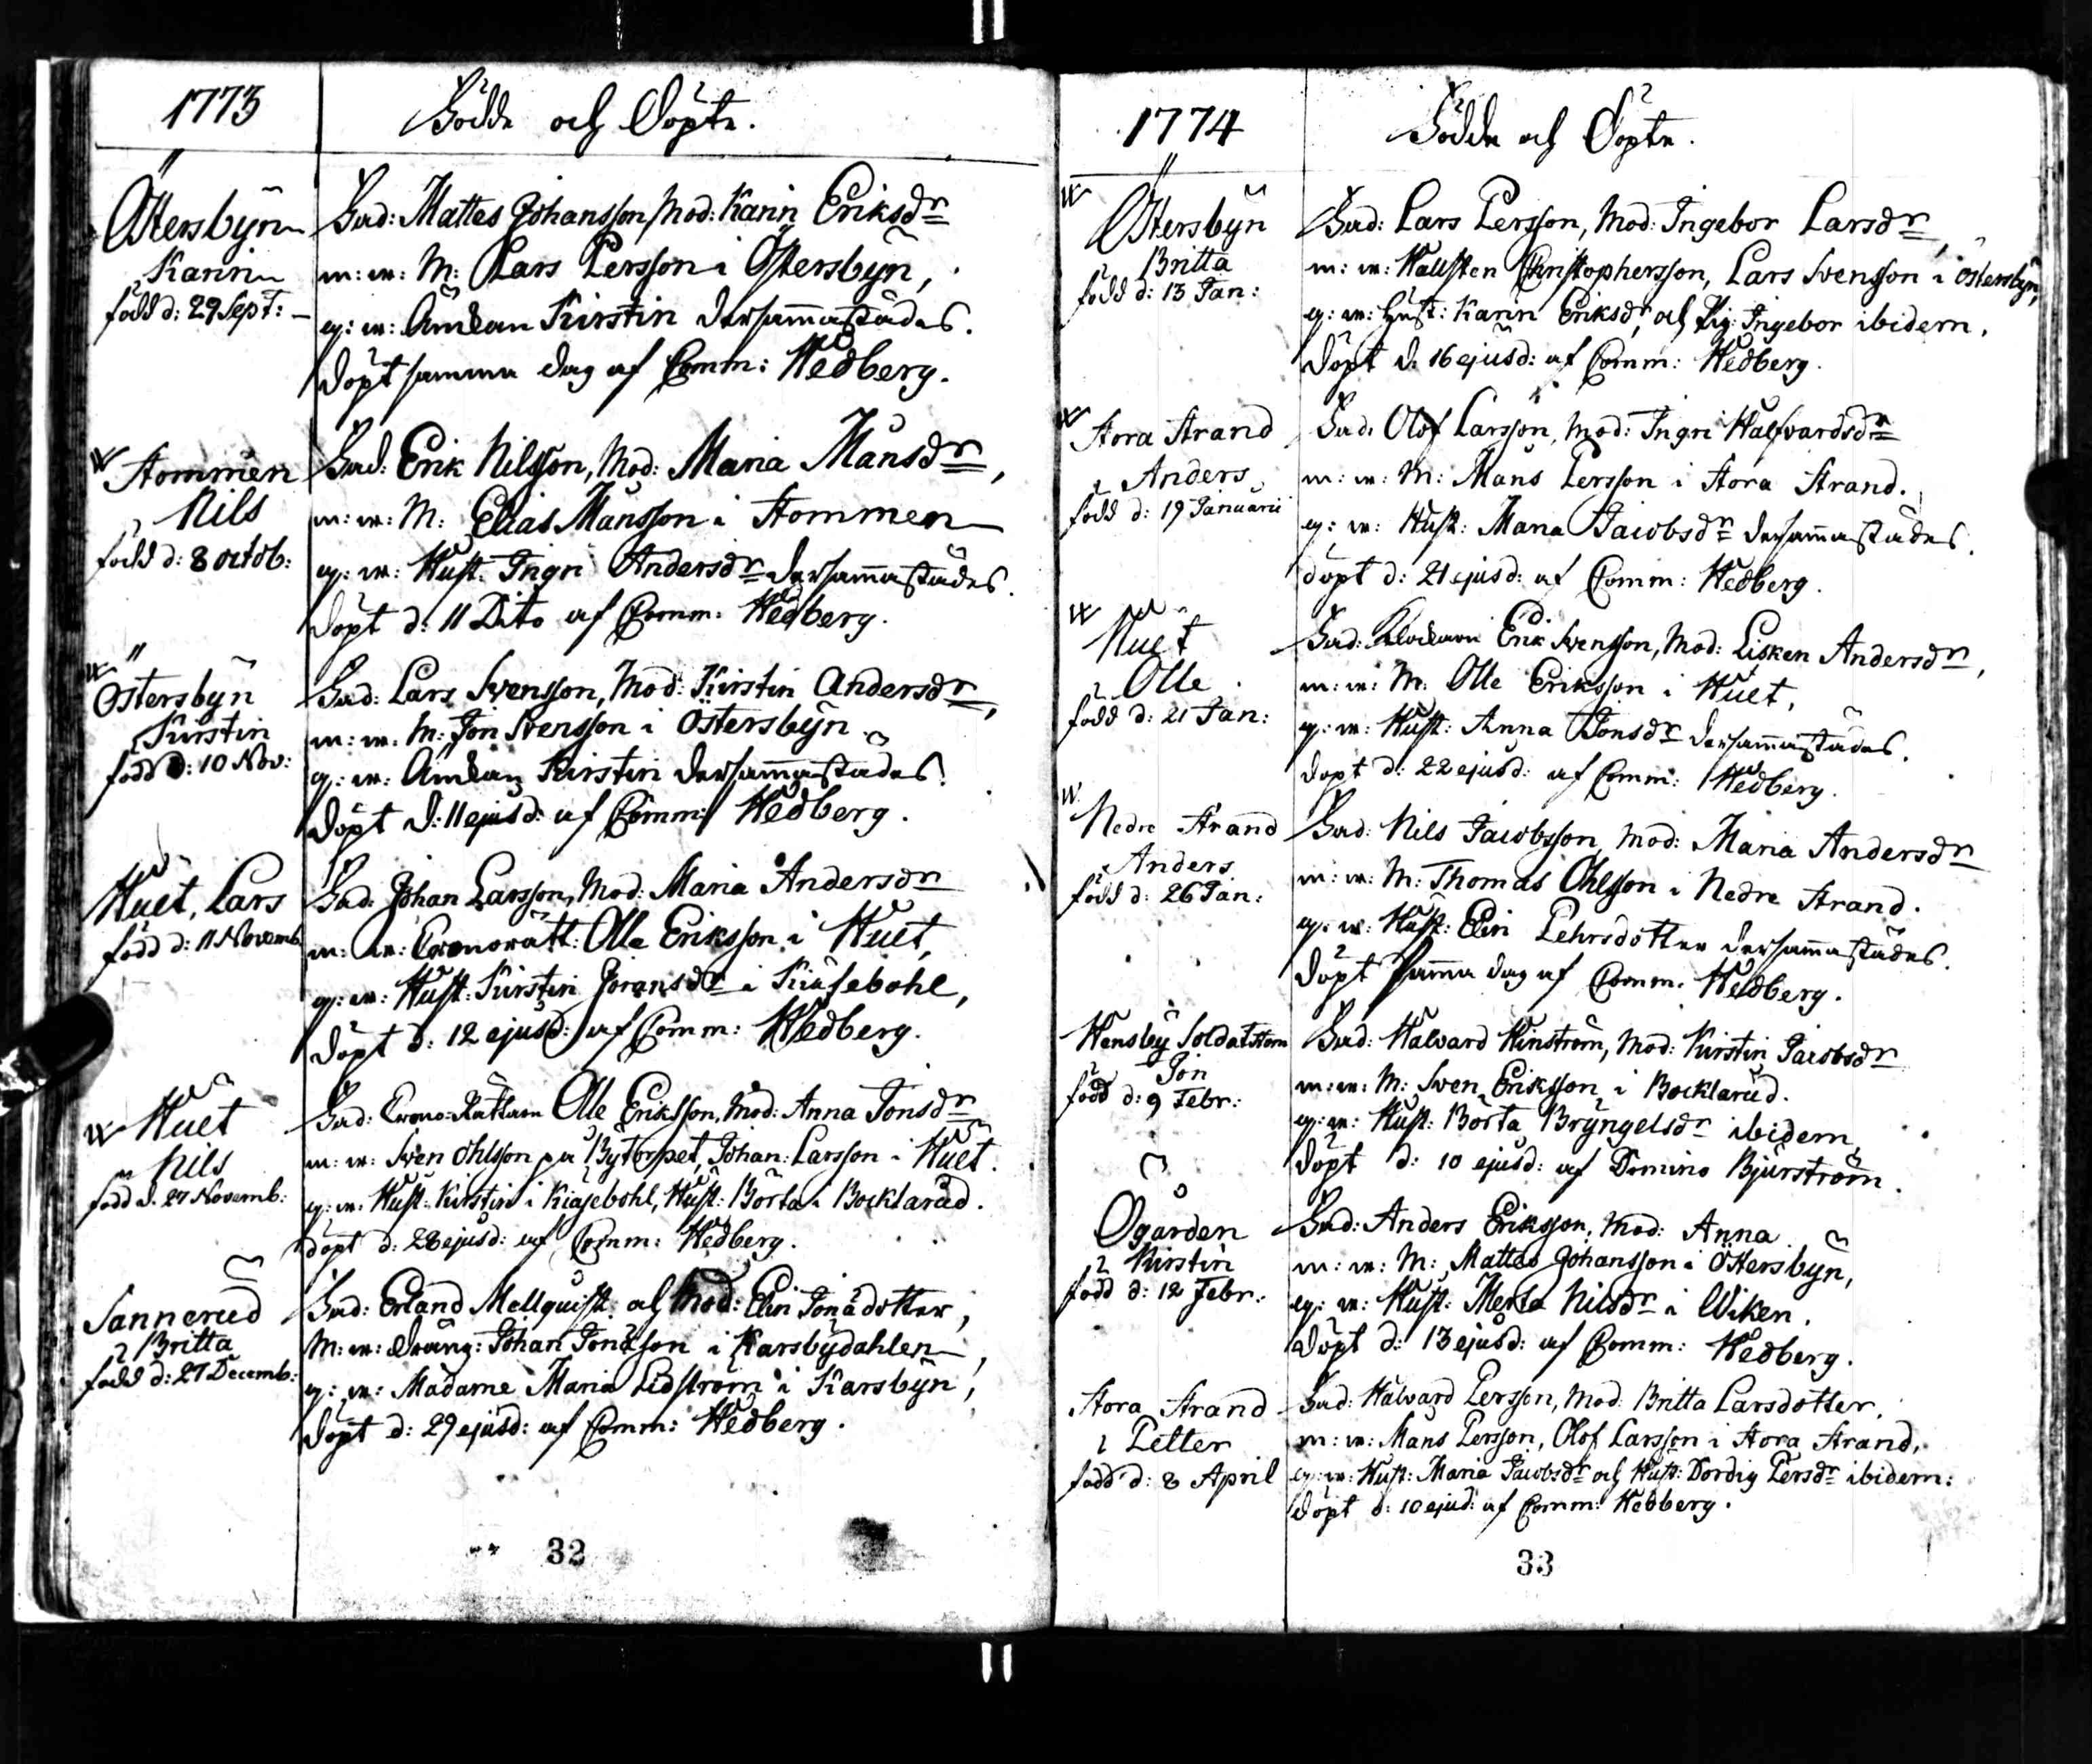 1773
Födde och Döpte.
Östersbyn
Karin
född d: 29 Sept:
Fad: Mattes Johansson, Mod: Karin Eriksdr
m: w: M: Lars Persson i Östersbyn,
q: w: Änkan Kirstin dersammastädes.
döpt samma dag af Comm: Hedberg.
Stommen
Nils
född d: 8 octob:
Fad: Erik Nilsson, Mod: Maria Månsdr,
m: w: M: Elias Månsson i Stommen
q: w: Hust: Ingri Andersdr dersammastädes.
döpt d: 11 Dito af Comm: Hedberg.
Östersbyn
Kirstin
född d: 10 Nov:
Fad: Lars Svensson, Mod: Kirstin Andersdr,
m: w: M: Jon Svensson i Östersbyn
q: w: Änkan Kirstin dersammastädes.
döpt d: 11 ejusd: af Comm: Hedberg.
Huet, Lars
född d: 11 Novemb
Fad: Johan Larsson, Mod: Maria Andersdr
m: w: Cronorätt: Olle Eriksson i Huet,
q: w: Hust: Kirstin Joransdr i Kiäsebohl,
döpt d: 12 ejusd: af Comm: Hedberg.
Huet
Nils
född d: 27 Novemb:
Fad: Crono-Rättaren Olle Eriksson, Mod: Anna Jonsdr
m: w: Sven Ohlsson på Bytorpet, Johan: Larsson i Huet.
q: w: Hust: Kirstin i Kiäsebohl, Hust: Börta i Bocklarud.
döpt d: 28 ejusd: af Comm: Hedberg.
Sannerud
Britta
född d: 27 Decemb:
Fad: Erland Mellquist och Mod: Elin Jonsdotter,
M: w: Dräng: Johan Jonsson i Karsbydahlen,
q: w: Madame Maria Lidström i Karsbyn,
döpt d: 29 ejusd: af Comm: Hedberg.
32
1774
Födde och Döpte.
Östersbyn
Britta
född d: 13 Jan:
Fad: Lars Persson, Mod: Ingebor Larsdr,
m: w: Hallsten Christophersson, Lars Svensson i Östersbyn,
q: w: Hust: Karin Eriksdr, och Pig: Ingebor ibidem.
döpt d: 16 ejusd: af Comm: Hedberg.
Stora Strand
Anders
född d: 19 Januarii
Fad: Olof Larsson, Mod: Ingri Halfvardsdr
m: w: M: Måns Persson i Stora Strand.
q: w: Hust: Maria Jacobsdr dersammastädes.
döpt d: 21 ejusd: af Comm: Hedberg.
Huet
Olle
född d: 21 Jan:
Fad: Erik Svensson, Mod: Lisken Andersdr,
m: w: M: Olle Eriksson i Huet,
q: w: Hust: Anna Jonsdr dersammastädes.
döpt d: 22 ejusd: af Comm: Hedberg.
Nedre Strand
Anders
född d: 26 Jan:
Fad: Nils Jacobsson, Mod: Maria Andersdr
m: w: M: Thomas Ohlsson i Nedre Strand.
q: w: Hust: Elin Pehrsdotter dersammastädes.
döpt samma dag af Comm: Hedberg.
Hensby Soldatstom
Jon
född d: 9 Febr:
Fad: Halvard Hinström, Mod: Kirstin Jacobsdr
m: w: M: Sven Eriksson i Bocklarud.
q: w: Hust: Börta Bryngelsdr ibidem
döpt d: 10 ejusd: af Domino Bjurström.
Ögården
Kirstin
född d: 12 Febr:
Fad: Anders Eriksson, Mod: Anna
m: w: M: Mattes Johansson i Östersbyn,
q: w: Hust: Merta Nilsdr i Wiken.
döpt d: 13 ejusd: af Comm: Hedberg.
Stora Strand
Petter
född d: 8 April
Fad: Halvard Persson, Mod: Britta Larsdotter,
m: w: Måns Persson, Olof Larsson i Stora Strand,
q: w: Hust: Maria Jacobsdr och Hust: Dordig Persdr ibidem:
döpt d: 10 ejud: af Comm: Hedberg.
33